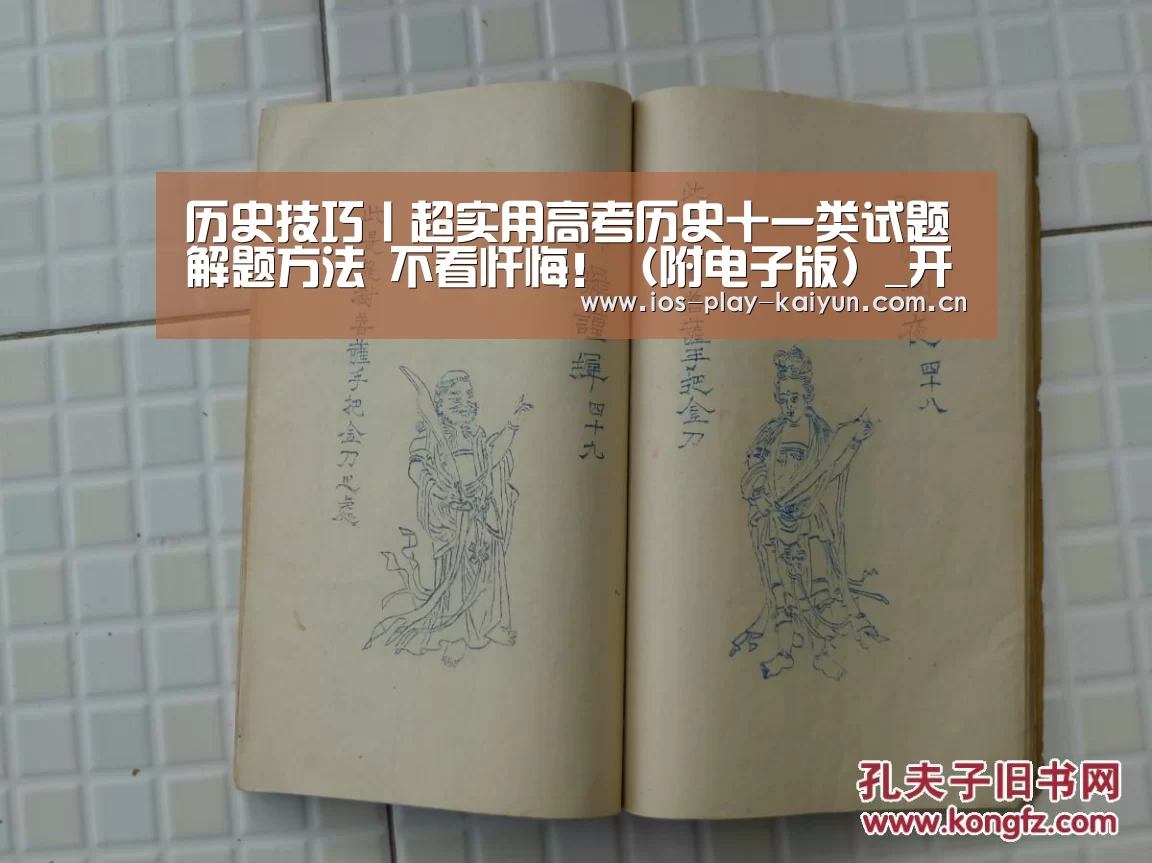 历史技巧丨超实用高考历史十一类试题
解题方法 不看忏悔！（附电子版）_开
www.ios-play-kaiyun.com.cn
四十八
菩薩手把金刀
四十九
菩薩手把金刀
孔夫子旧书网
www.kongfz.com